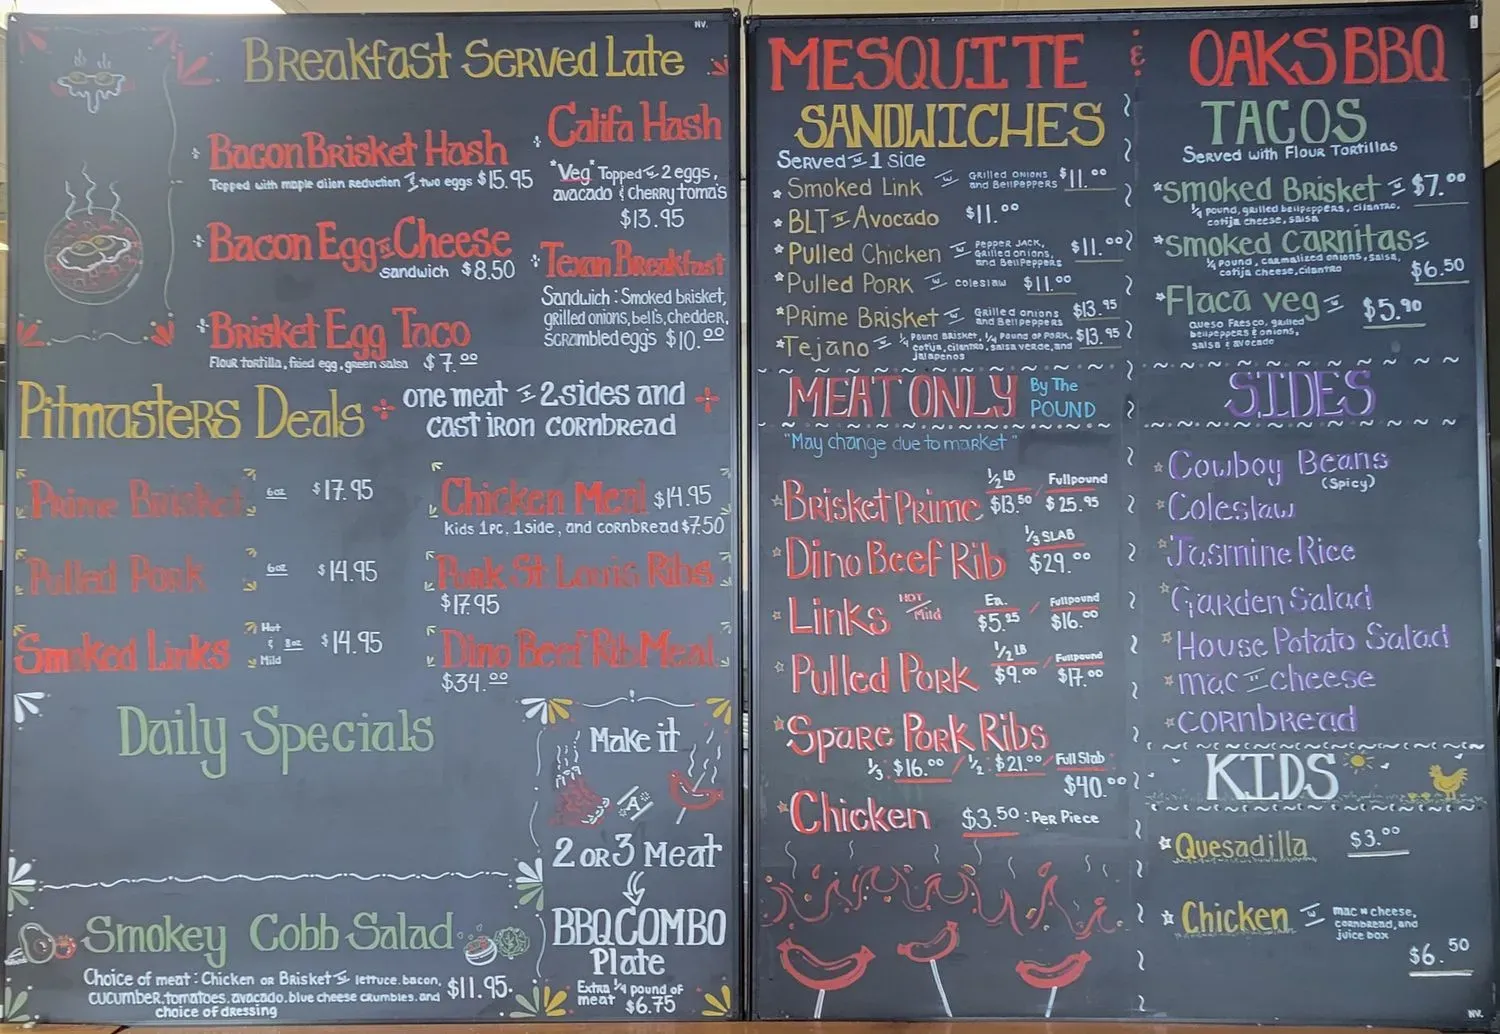 NV.
Breakfast Served Late
Bacon Brisket Hash
Topped with maple dijon reduction & two eggs $15.95
Bacon Egg & Cheese
sandwich $8.50
Brisket Egg Taco
Flour tortilla, fried egg, green salsa $7.00
Califa Hash
"Veg" Topped w 2 eggs,
avocado & Cherry toma's
$13.95
Texan Breakfast
Sandwich: Smoked brisket,
grilled onions, bell's, chedder,
scrambled egg's $10.00
Pitmasters Deals
one meat & 2 sides and
cast iron cornbread
Prime Brisket 6oz $17.95
Pulled Pork 6oz $14.95
Smoked Links Hot & Mild 8oz $14.95
Chicken Meal $14.95
kids 1pc, 1side, and cornbread $7.50
Pork St Louis Ribs
$17.95
Dino Beef Rib Meal
$34.00
Daily Specials
Make it
A
2 or 3 Meat
BBQ COMBO
Plate
Extra 1/4 pound of
meat $6.75
Smokey Cobb Salad
Choice of meat: Chicken or Brisket w lettuce, bacon,
cucumber, tomatoes, avocado, blue cheese crumbles, and
choice of dressing
$11.95
MESQUITE & OAKS BBQ
SANDWICHES
Served w 1 side
Smoked Link w Grilled onions
and BellPeppers $11.00
BLT w Avocado $11.00
Pulled Chicken w Pepper Jack,
Grilled onions,
and BellPeppers $11.00
Pulled Pork w coleslaw $11.00
Prime Brisket w Grilled onions
and BellPeppers $13.95
Tejano w 1/4 Pound Brisket, 1/4 Pound of Pork,
cotija, cilantro, salsa verde, and
jalapenos $13.95
MEAT ONLY By The
POUND
"May change due to market"
Brisket Prime 1/2 LB $13.50 / Fullpound $25.95
Dino Beef Rib 1/3 SLAB $29.00
Links HOT/Mild Ea. $5.95 / Fullpound $16.00
Pulled Pork 1/2 LB $9.00 / Fullpound $17.00
Spare Pork Ribs
1/3: $16.00 / 1/2: $21.00 / Full Slab
$40.00
Chicken $3.50: Per Piece
TACOS
Served with Flour Tortillas
Smoked Brisket w $7.00
1/4 pound, grilled bellpeppers, cilantro,
cotija cheese, salsa
Smoked Carnitas w
1/4 pound, carmalized onions, salsa,
cotija cheese, cilantro $6.50
Flaca veg w $5.90
queso fresco, grilled
bellpeppers & onions,
salsa & avocado
SIDES
Cowboy Beans
(Spicy)
Coleslaw
Jasmine Rice
Garden Salad
House Potato Salad
mac n cheese
cornbread
KIDS
Quesadilla $3.00
Chicken w mac n cheese,
cornbread, and
juice box
$6.50
NV.